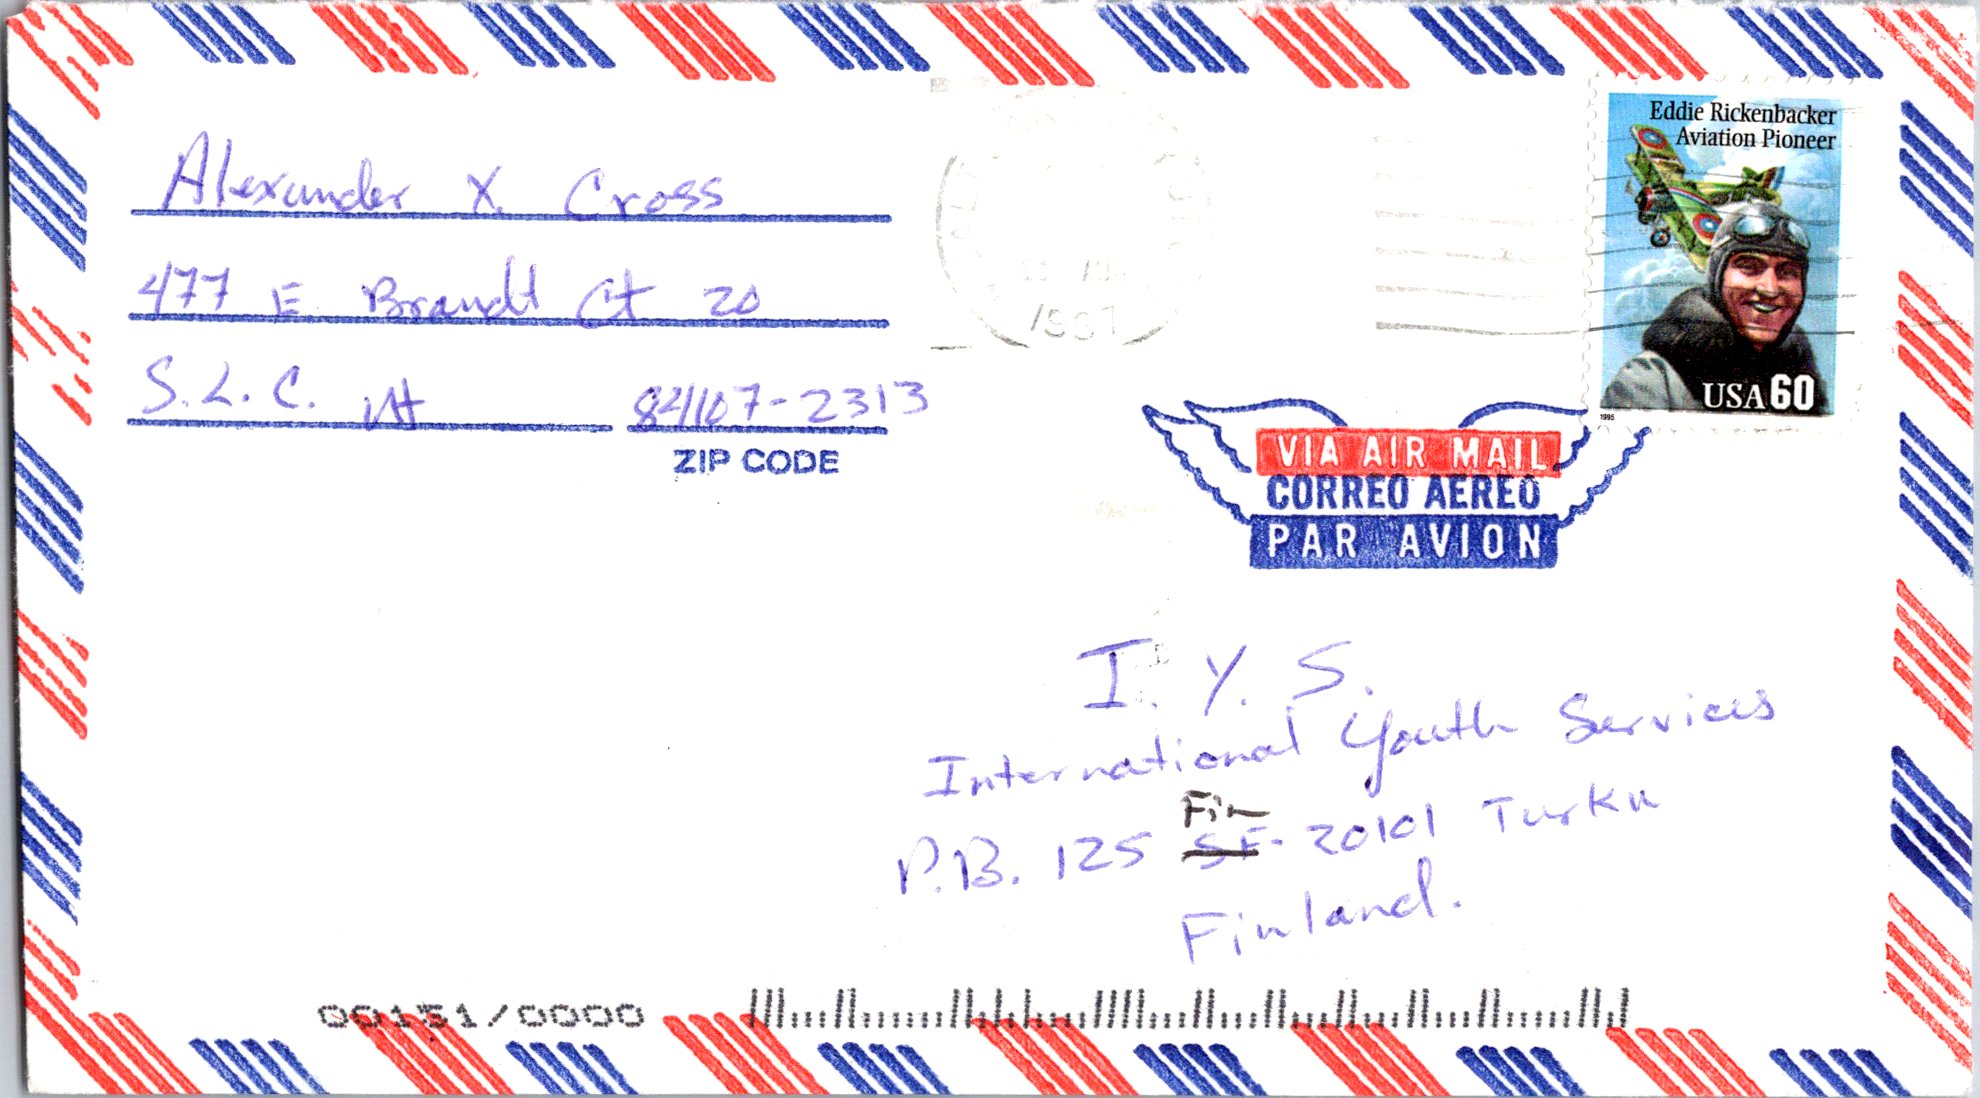 Alexander X. Cross
477 E. Brandt Ct 20
S.L.C. Ut 84107-2313
ZIP CODE
1997
Eddie Rickenbacker
Aviation Pioneer
USA 60
1995
VIA AIR MAIL
CORREO AEREO
PAR AVION
I. Y. S.
International Youth Services
Fin
P.B. 125 SF- 20101 Turku
Finland.
00151/0000